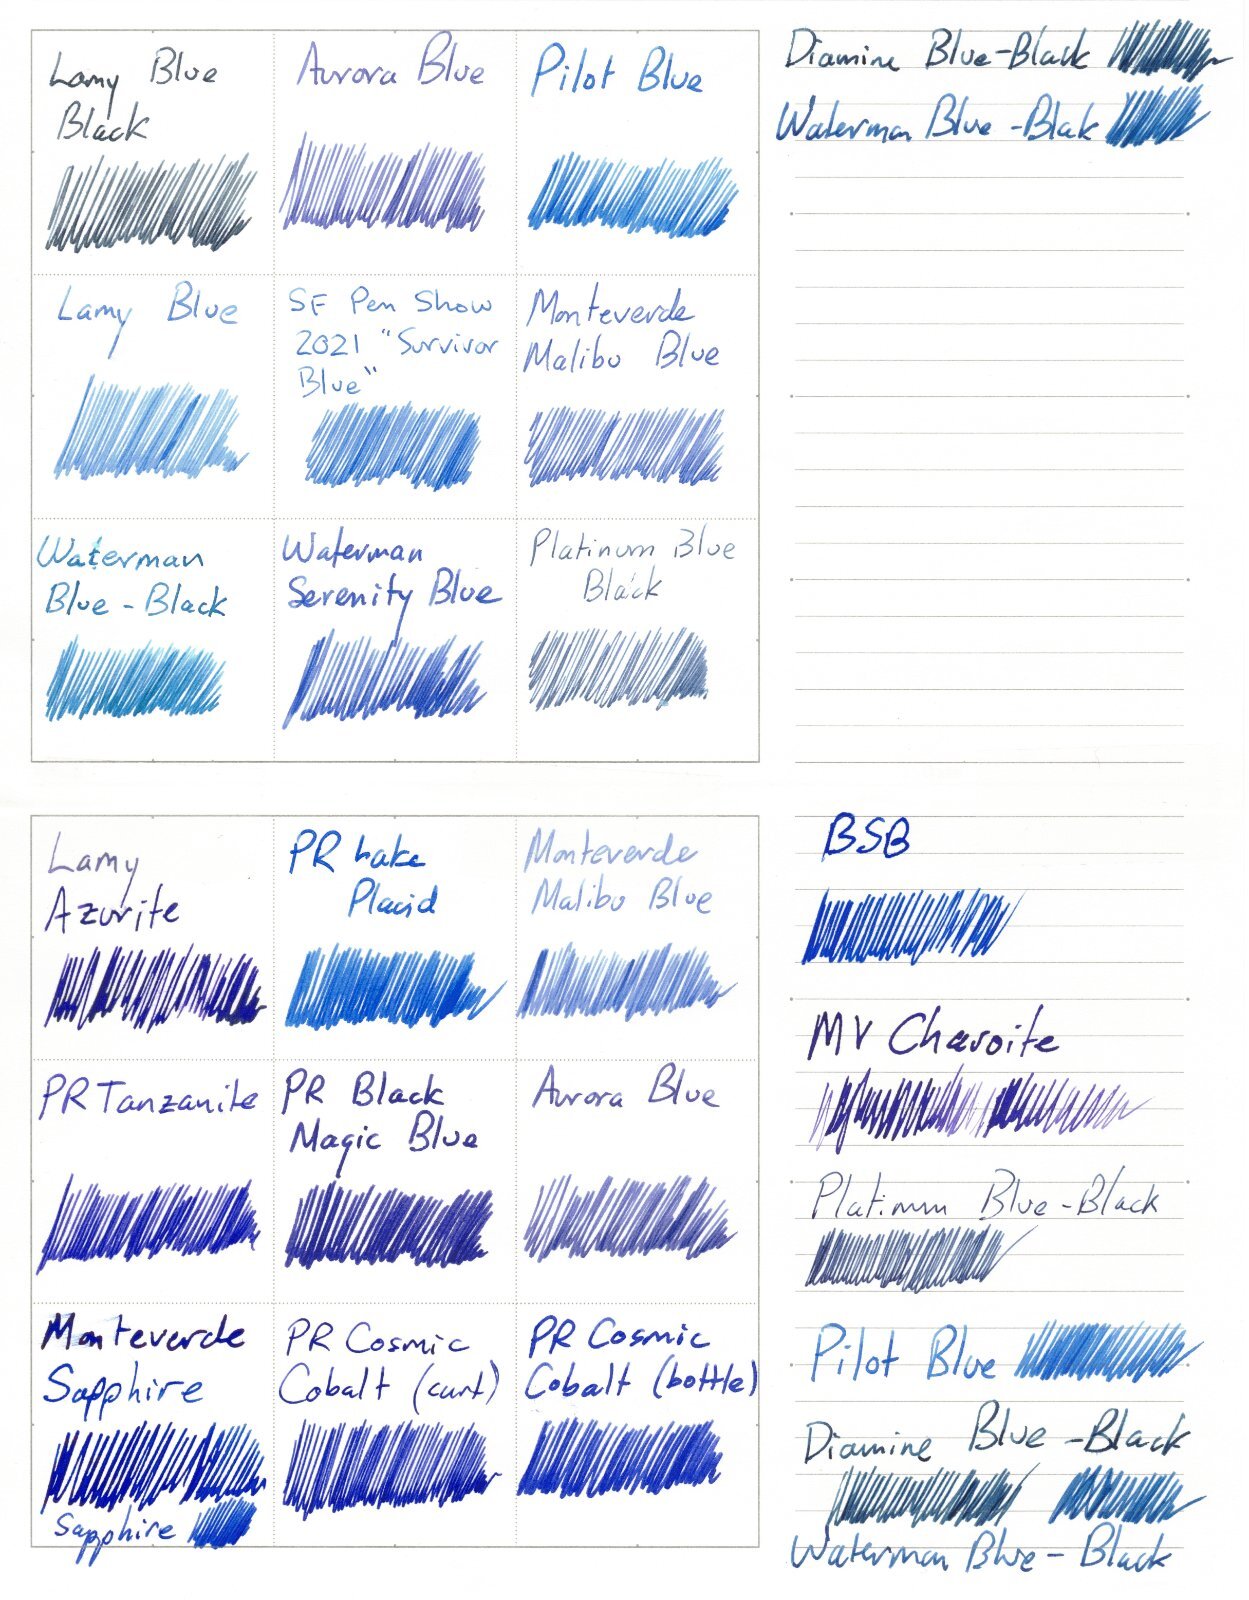 Lamy Blue
Black
Aurora Blue
Pilot Blue
Lamy Blue
SF Pen Show
2021 "Survivor
Blue"
Monteverde
Malibu Blue
Waterman
Blue - Black
Waterman
Serenity Blue
Platinum Blue
Black
Diamine Blue-Black
Waterman Blue - Blak
Lamy
Azurite
PR Lake
Placid
Monteverde
Malibu Blue
PR Tanzanite
PR Black
Magic Blue
Aurora Blue
Monteverde
Sapphire
Sapphire
PR Cosmic
Cobalt (cart)
PR Cosmic
Cobalt (bottle)
BSB
MV Charoite
Platinum Blue - Black
Pilot Blue
Diamine Blue - Black
Waterman Blue - Black